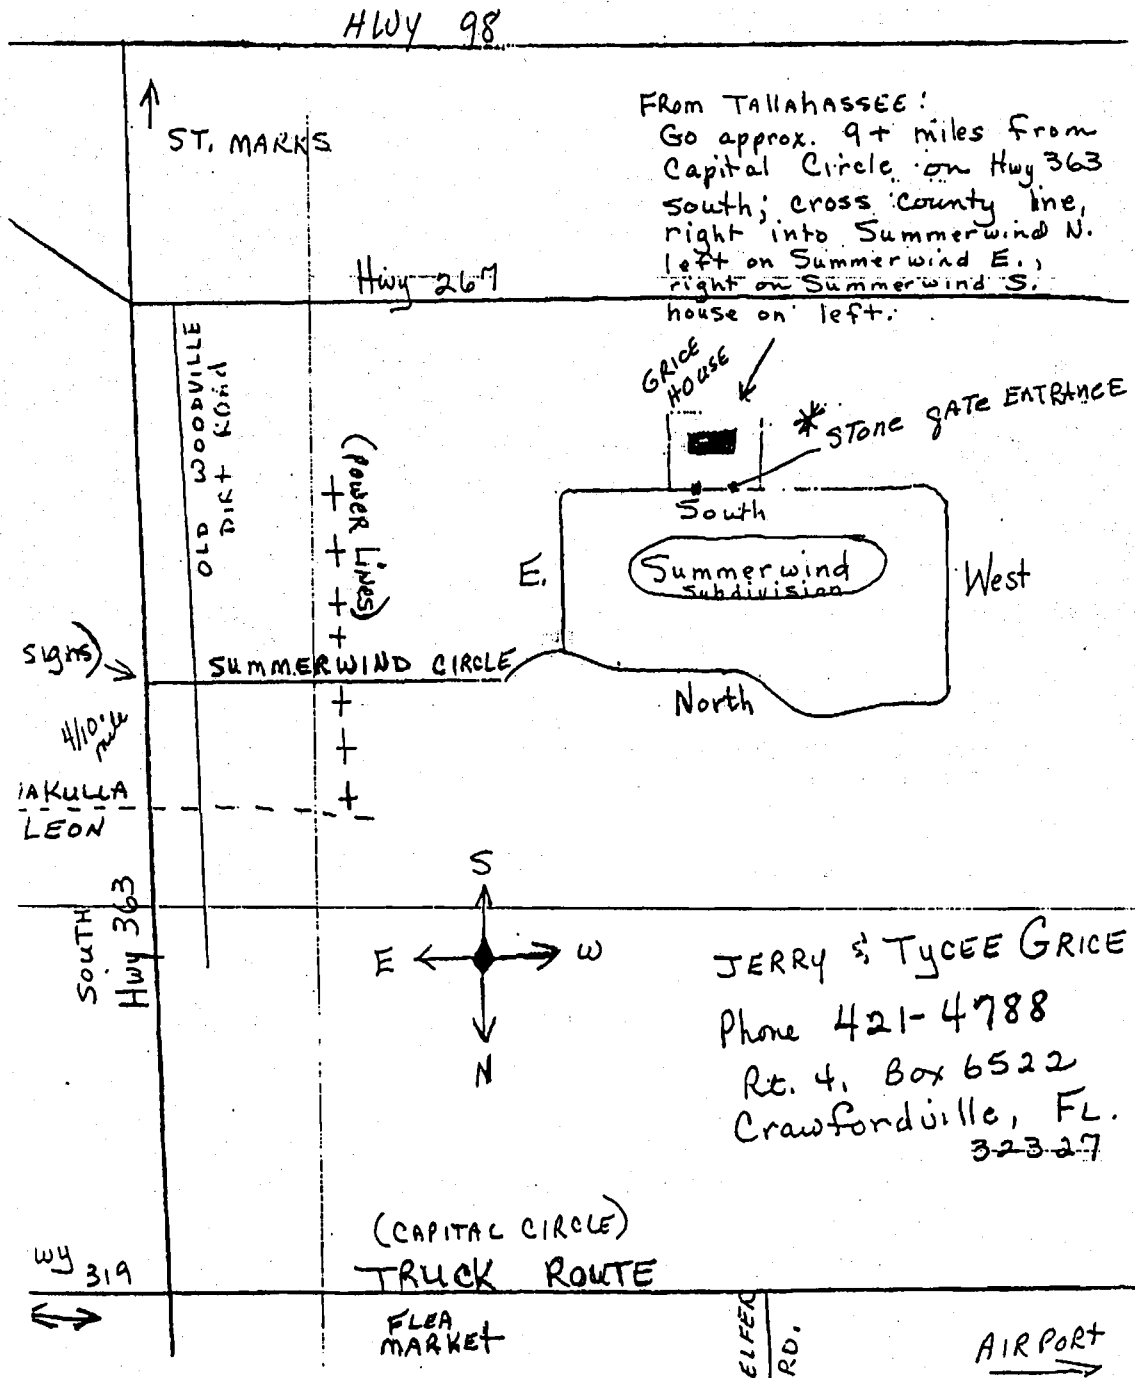 HWY 98
ST. MARKS
FROM TALLAHASSEE:
Go approx. 9+ miles from
Capital Circle on Hwy 363
south; cross county line,
right into Summerwind N.
left on Summerwind E.,
right on Summerwind S.
house on left.
Hwy 267
OLD WOODVILLE
DIRT ROAD
(POWER LINES)
GRICE
HOUSE
* STONE GATE ENTRANCE
South
E.
Summerwind
Subdivision
West
signs)
SUMMERWIND CIRCLE
North
4/10 mile
AKULLA
LEON
SOUTH
Hwy 363
S
E
W
N
JERRY & TYCEE GRICE
Phone 421-4788
Rt. 4, Box 6522
Crawfordville, FL.
32327
(CAPITAL CIRCLE)
wy 319
TRUCK ROUTE
FLEA
MARKET
ELFER
RD.
AIRPORT